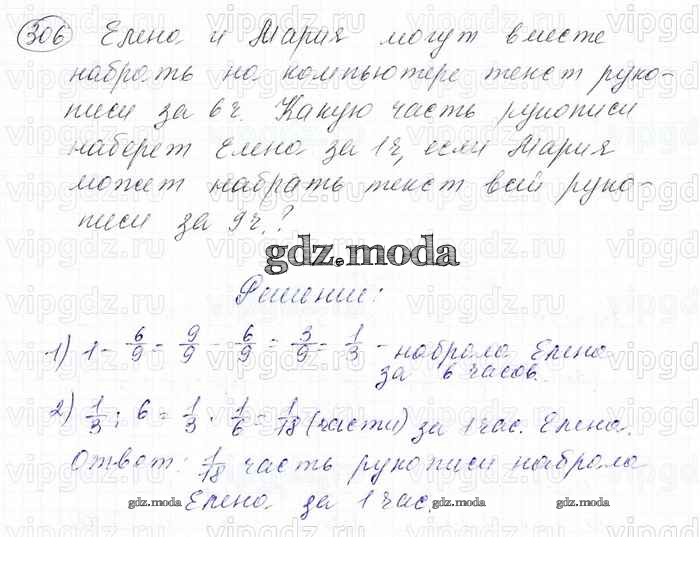 306 Елена и Мария могут вместе
набрать на компьютере текст руко-
писи за 6ч. Какую часть рукописи
наберет Елена за 1ч, если Мария
может набрать текст всей руко-
писи за 9ч.?
gdz.moda
Решение:
1) 1 - 6/9 = 9/9 - 6/9 = 3/9 = 1/3 - набрала Елена
за 6 часов.
2) 1/3 : 6 = 1/3 · 1/6 = 1/18 (части) за 1 час. Елена.
Ответ: 1/18 часть рукописи набрала
Елена за 1 час.
gdz.moda gdz.moda gdz.moda gdz.moda